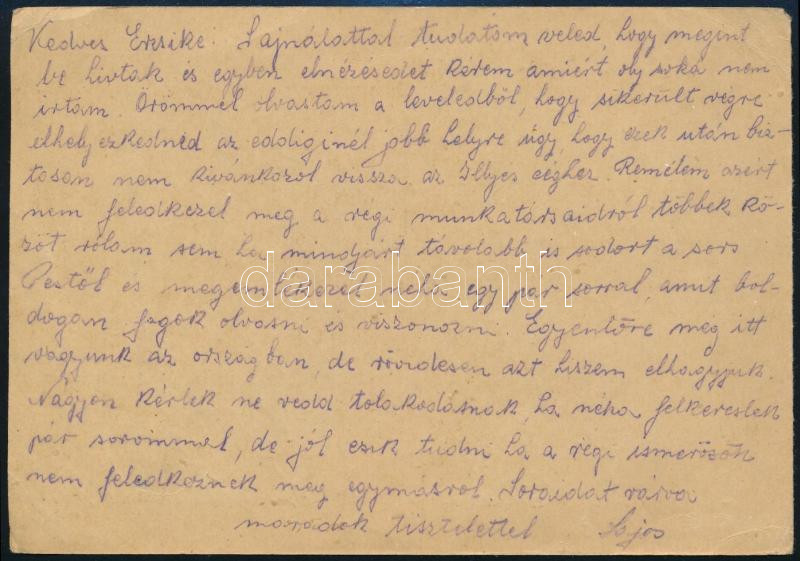 Kedves Erzsike. Sajnálattal tudatom veled, hogy megint
be hivtak és egyben elnézésedet kérem amiért oly soká nem
irtam. Örömmel olvastam a leveledből, hogy sikerült végre
elhelyezkedned az eddiginél jobb helyre úgy, hogy ezek után biz-
tosan nem kivánkozol vissza az Illyes céghez. Remélem azért
nem feledkezel meg a regi munkatársaidról többek kö-
zöt rólam sem ha mindjárt távolabb is sodort a sors
Pestől és megemlékezel neha egy pár sorral, amit bol-
dogan fogok olvasni és viszonozni. Egyenlőre meg itt
vagyunk az országban, de rövidesen azt hiszem elhagyjuk.
Nagyon kérlek ne vedd tolakodásnak, ha néha felkereslek
pár sorommal, de jól esik tudni ha a regi ismerősök
nem feledkeznek meg egymásrol. Soraidat várva
maradok tisztelettel Lajos
darabanth